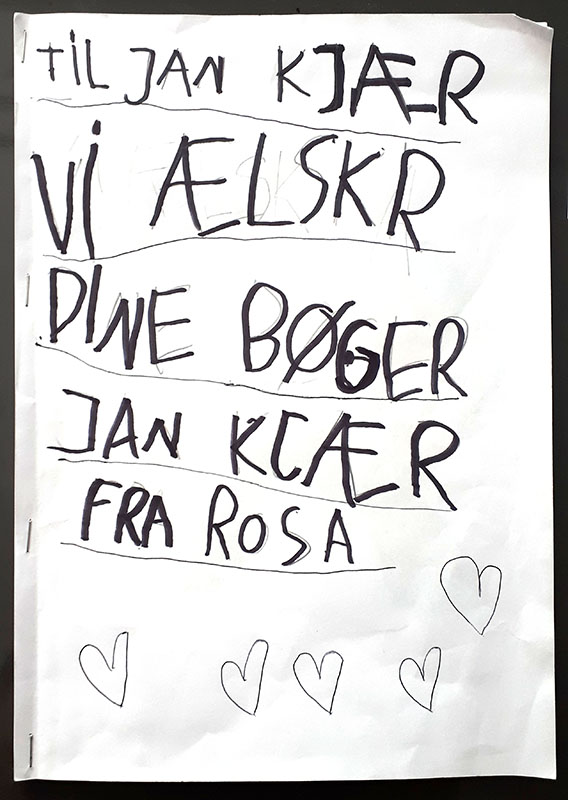 TiL JAN KJÆR
Vi ÆLSKR
DINE BØGER
JAN KJÆR
FRA ROSA